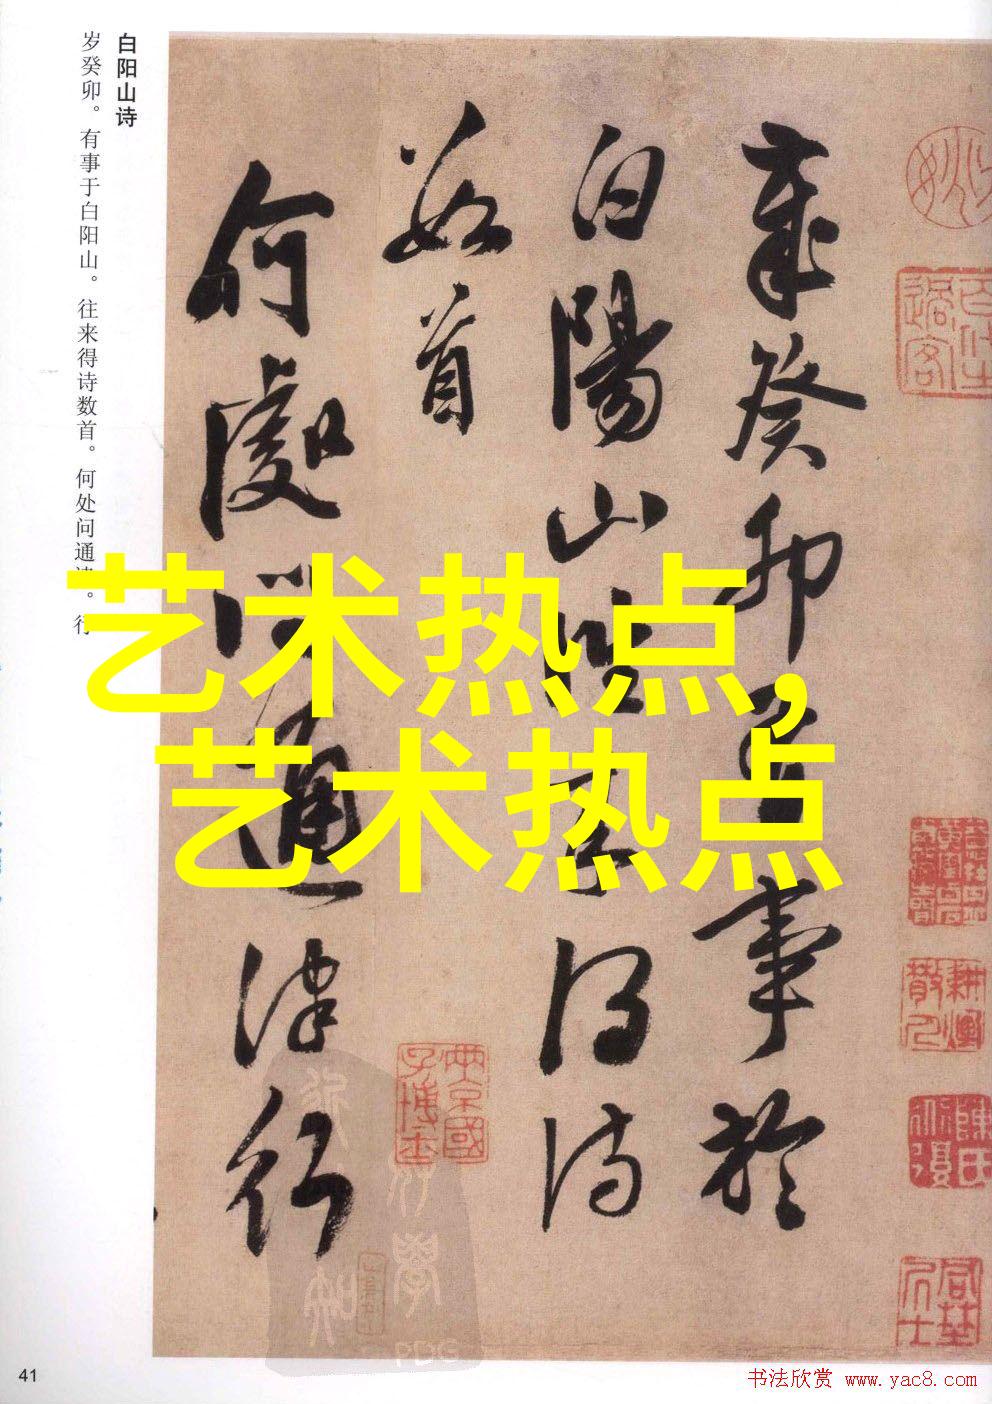 白阳山诗
岁癸卯。有事于白阳山。往来得诗数首。何处问通津。行
歲癸卯有事於
白陽山往來得詩
數首
何處問通津行
艺术热点,
艺术热点
41
书法欣赏 www.yac8.com
PDG